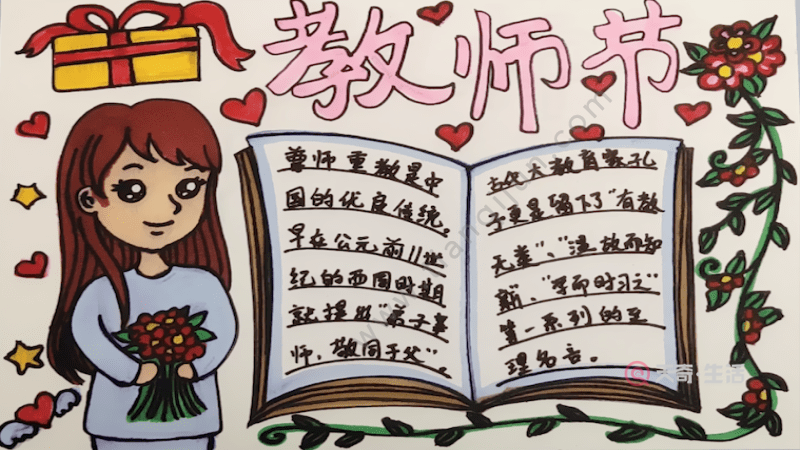 教师节
尊师重教是中
国的优良传统。
早在公元前11世
纪的西周时期
就提出“弟子事
师，敬同于父”。
古代大教育家孔
子更是留下了“有教
无类”、“温故而知
新”、“学而时习之”
等一系列的至
理名言。
大奇·生活